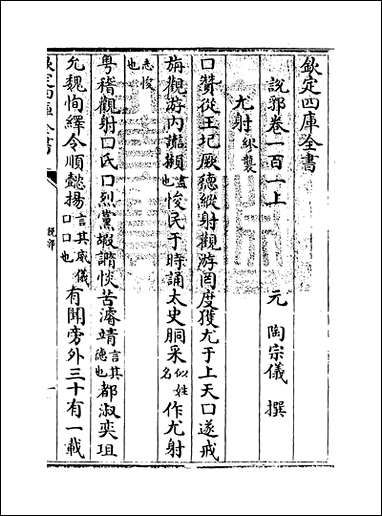 欽定四庫全書
說郛卷一百一上
元 陶宗儀 撰
尤射 繆襲
口贊從王圮厥德縱射觀游罔度獲尤于上天口遂戒
旃觀游内 盡也 悛民于時誦太史胴采 似姓名 作尤射
志悛也
粵稽觀射口氏口烈黨嘏 惔苦濬靖 言其德也 都淑奕珇
允魏恂繹令順懿揚 言其威儀口口也 有聞旁外三十有一載
欽定四庫全書
說郛
一